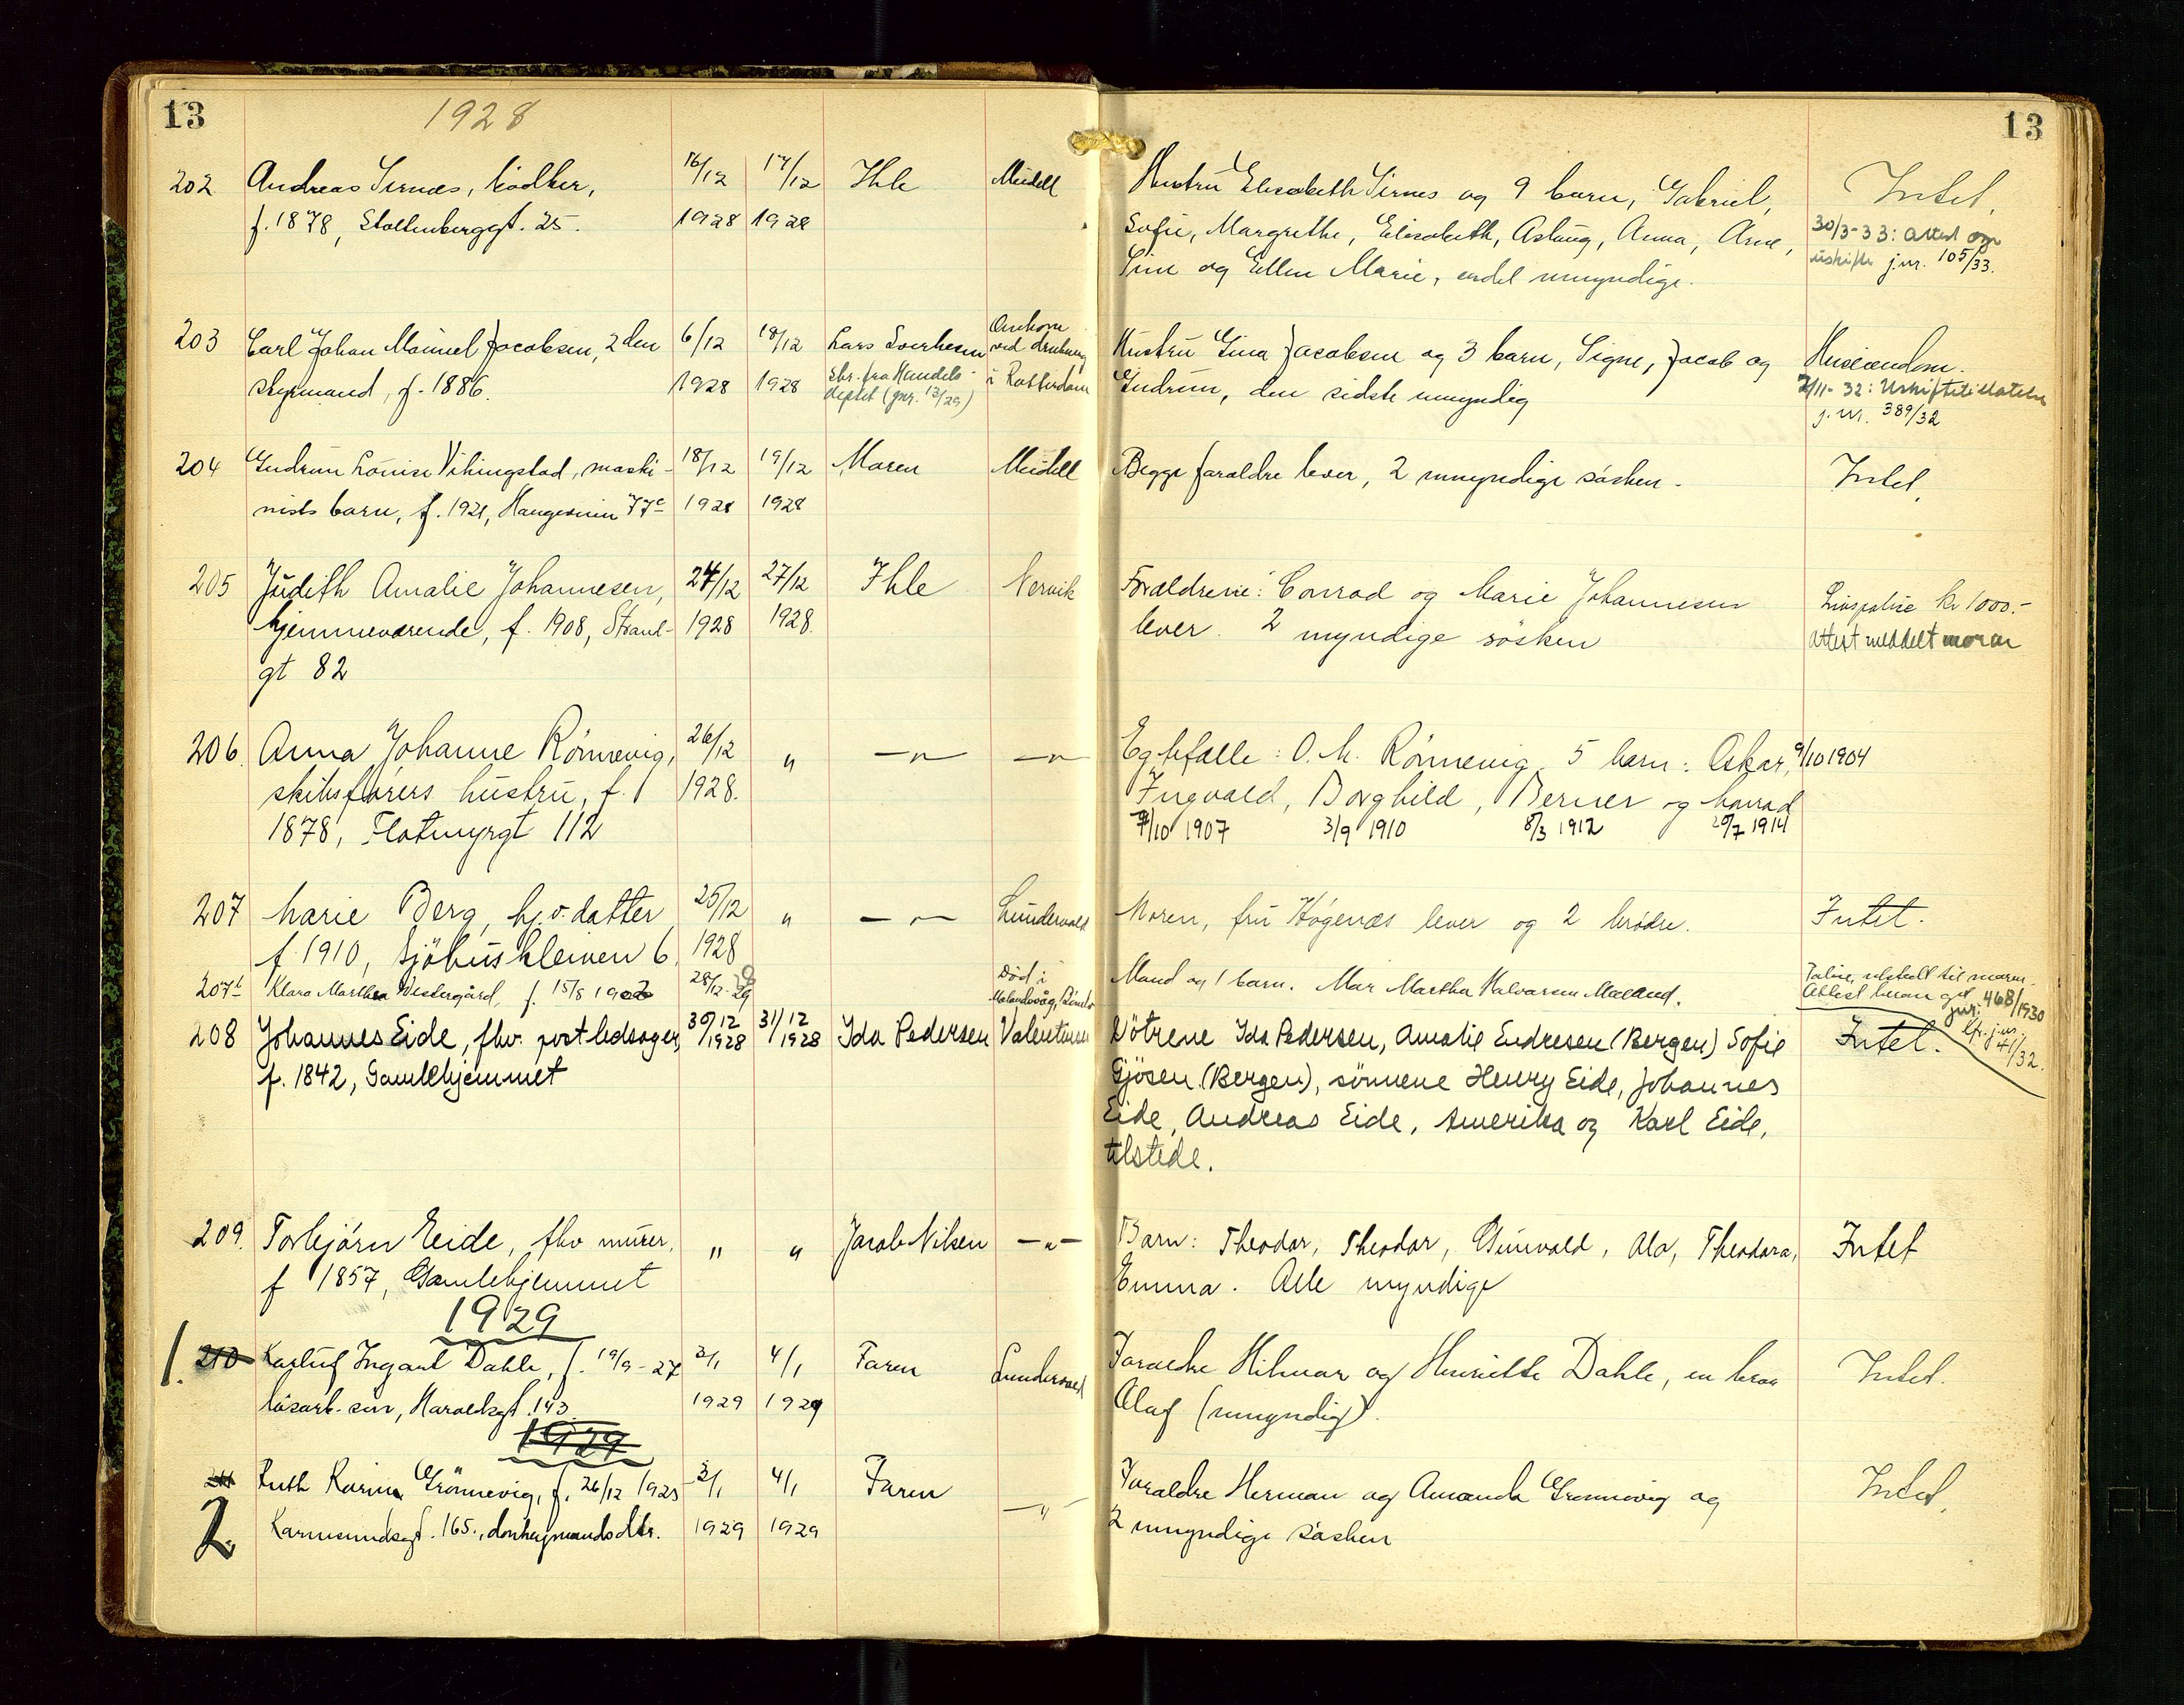 13
1928
13
202 Andreas Sirnæs, bödker, 16/12 17/12 Ihle Meidell Hustru Elisabeth Sirnes og 9 barn, Gabriel, Intet.
f. 1878, Stoltenberggt. 25. 1928 1928 Sofie, Margrethe, Elisabeth, Aslaug, Anna, Arne, 30/3-33: Attest om
og Ellen Marie, endel umyndige. uskifte j.nr. 105/33.
203 Carl Johan Mauriel Jacobsen, 2den 6/12 18/12 Lars Sverhesen Omkom ved drukning Hustru Gina Jacobsen og 3 barn, Signe, Jacob og Huseiendom.
styrmand, f. 1886. 1928 1928 Skr. fra Handels- i Rotterdam Gudrun, den sidste umyndig 2/11-32: Uskiftetillatelse
deptet (jnr. 13/29) j. nr. 389/32
204 Gudrun Louise Vikingstad, maski- 18/12 19/12 Moren Meidell Begge foraldre lever, 2 umyndige søsken. Intet.
nists barn, f. 1921, Haugeveien 77c 1928 1928
205 Judith Amalie Johannesen, 24/12 27/12 Ihle Nervik Forældrene: Conrad og Marie Johannesen Livspolise kr 1000.-
hjemmeværende, f. 1908, Strand- 1928 1928. lever. 2 myndige søsken Attest meddelt moren
gt 82
206. Anna Johanne Rönnevig, 26/12 " —"— —"— Egtefælle: O. M. Rönnevig 5 barn: Oskar, 9/10 1904
skibsførers hustru, f. 1928. Ingvald, Borghild, Berner og Conrad
1878, Flotmyrgt 112 9/10 1907 3/9 1910 8/3 1912 20/7 1914
207 Marie Berg, hj.v. datter 25/12 " —"— Lundervold Moren, fru Høgenæs lever og 2 brødre. Intet.
f. 1910, Sjöhuskleiven 6. 1928
207b Klara Marthea Westergård, f. 15/8 1902 28/12-29 Död i Mand og 1 barn. Mor Martha Halvarsen Mæland. Polise utstedt til moren.
Attest herom git jnr. 468/1930
Cfr. j.nr. 41/32.
208 Johannes Eide, fhv. postledsager, 30/12 1928 31/12 1928 Ida Pedersen Valentinsen Döttrene Ida Pedersen, Amalie Endresen (Bergen) Sofie Intet.
f. 1842, Gamlehjemmet Gjösen (Bergen), sönnene Henry Eide, Johannes
Eide, Andreas Eide, Amerika og Karl Eide,
tilstede.
209. Torbjørn Eide, fhv murer, " " Jacob Nilsen —"— Barn: Theodor, Theodor, Gunvald, Ola, Theodora, Intet
f 1857, Gamlehjemmet Emma. Alle myndige
1929
1. 210 Karluf Ingart Dahle, f. 19/9-27 3/1 4/1 Faren Lundervold Foraldre Hilmar og Henriette Dahle, en bror Intet.
løsarb. sön, Haraldsgt. 143. 1929 1929 Olaf (umyndig).
1929
211 Ruth Karina Grönnevig, f. 26/12 1925 3/1 4/1 Faren —"— Foraldre Herman og Amanda Grønnevig og Intet.
2. Karmsundsgt. 165., donkeymands dtr. 1929 1929 2 umyndige søsken